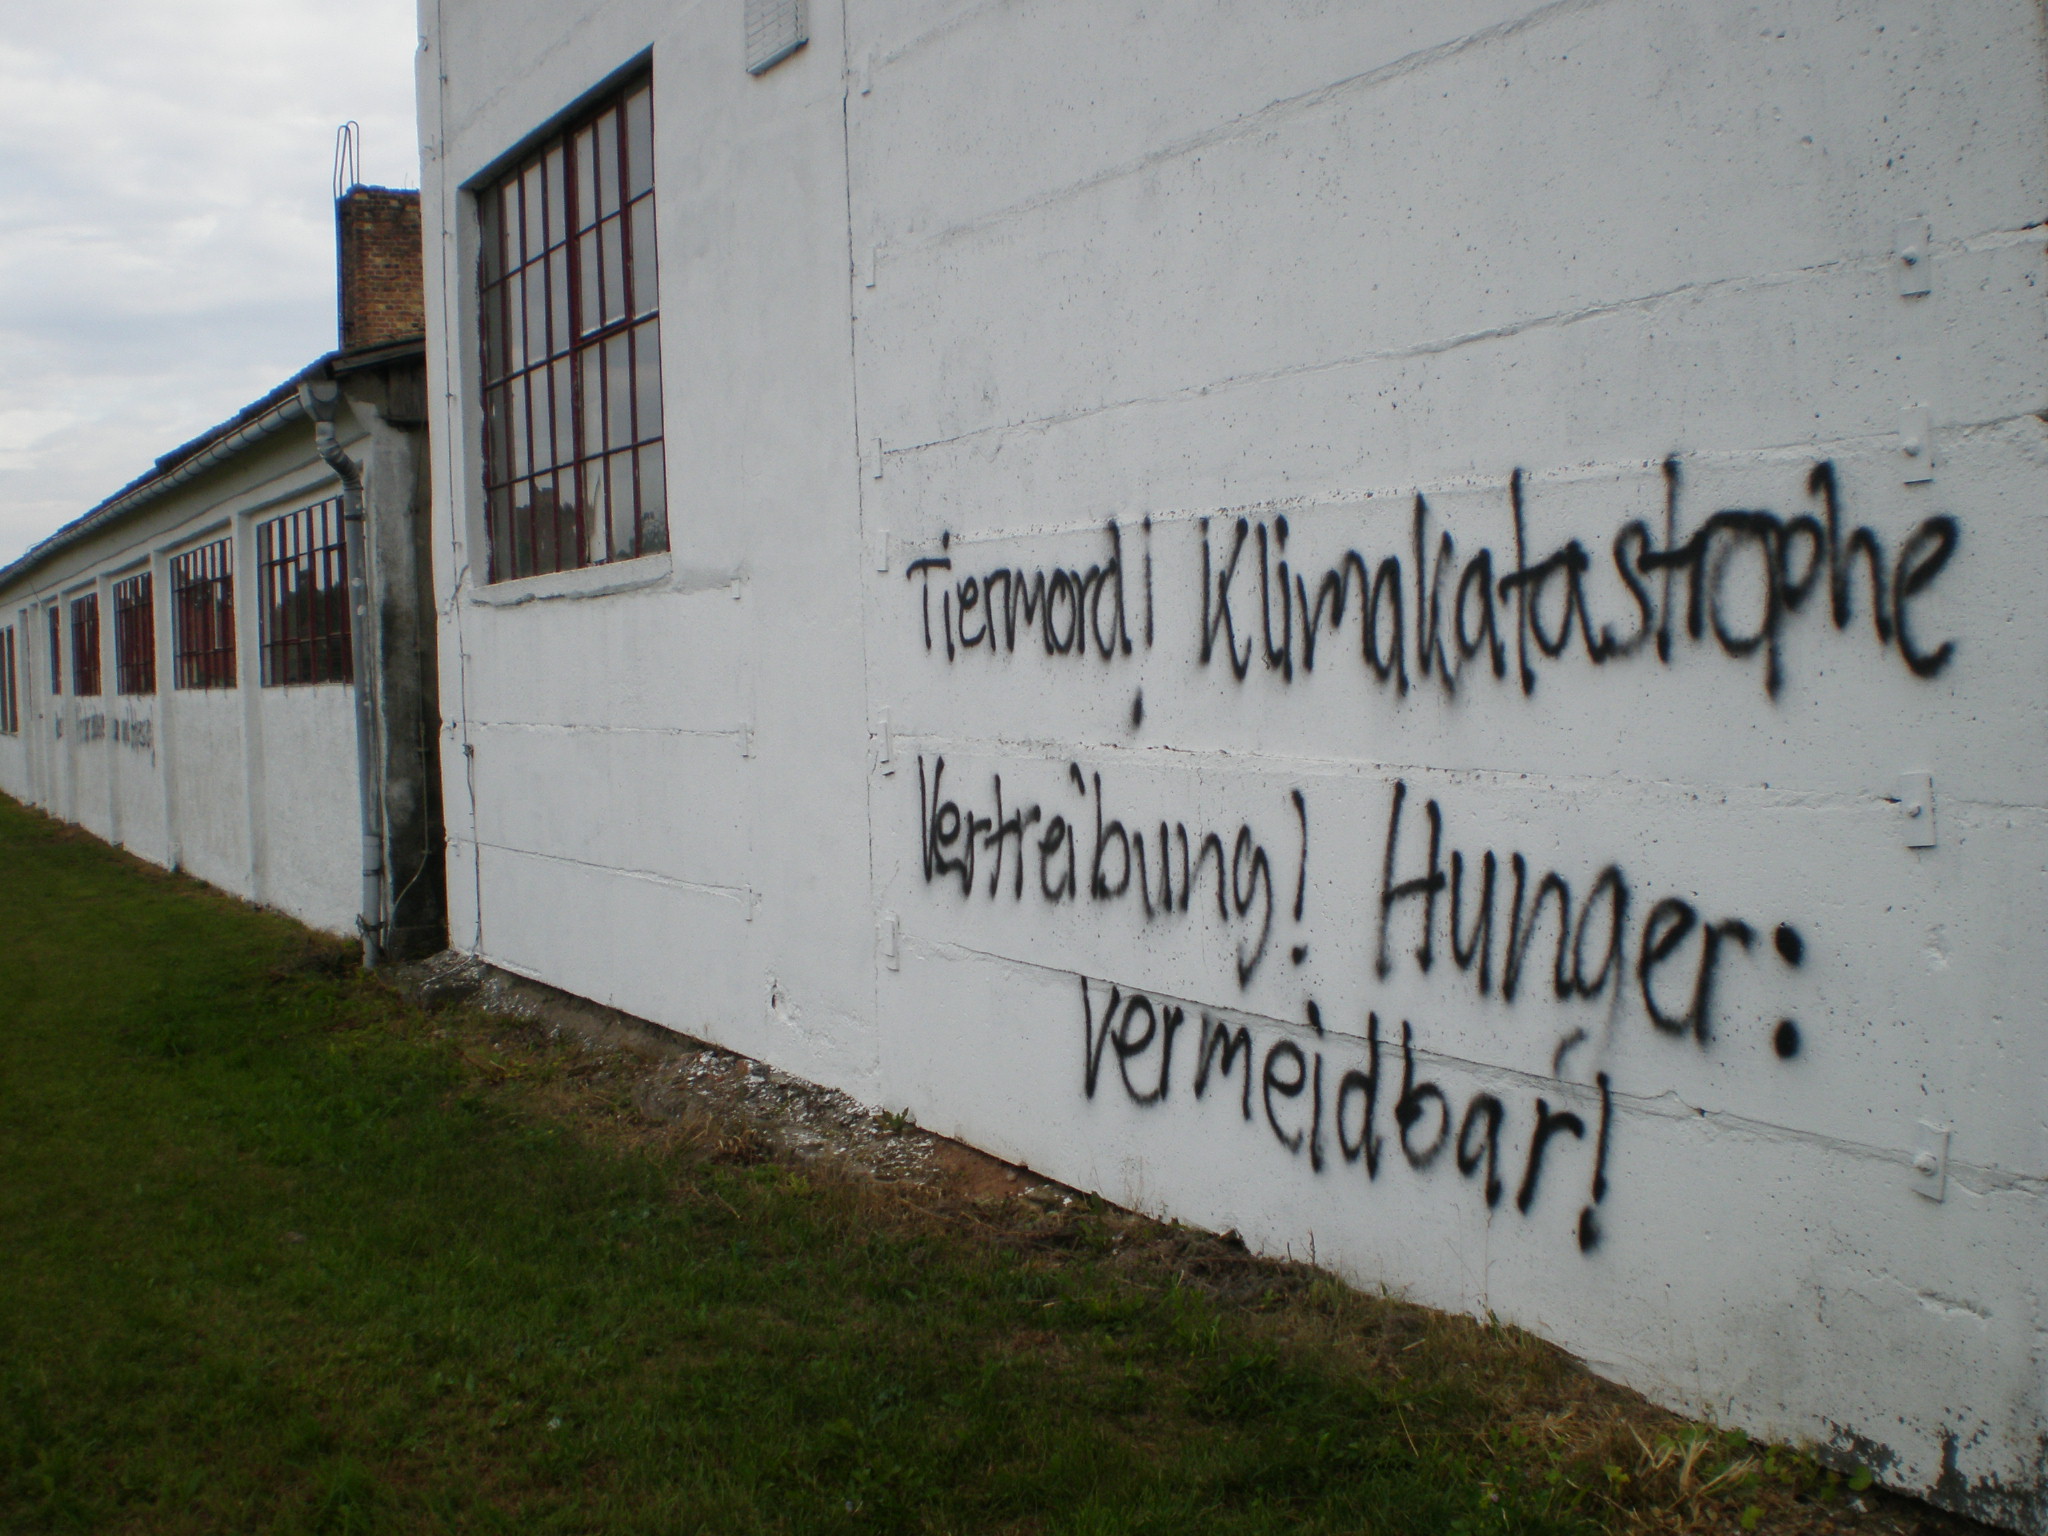 Tiermord! Klimakatastrophe
Vertreibung! Hunger:
Vermeidbar!